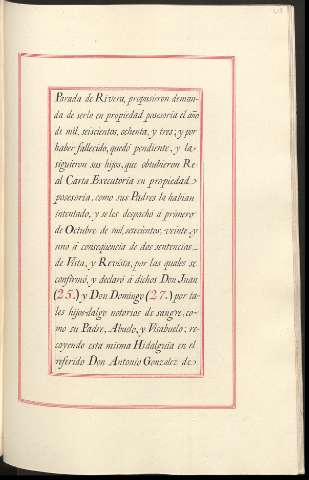 Parada de Rivera, propusieron deman-
da de serlo en propiedad posesoria el año
de mil, seiscientos, ochenta, y tres; y por
haber fallecido, quedó pendiente, y la
siguieron sus hijos, que obtubieron Re
al Carta Executoria en propiedad
posesoria, como sus Padres la habian
intentado, y se les despachó a primero
de Octubre de mil, setecientos, veinte y
uno á conseqüencia de dos sentencias
de Vista, y Revista, por las quales se
confirmó, y declaró á dichos Don Juan
(25.) y Don Domingo (27.) por ta-
les hijos-dalgo notorios de sangre, co-
mo su Padre, Abuelo, y Visabuelo; re-
cayendo esta misma Hidalguia en el
referido Don Antonio Gonzalez de